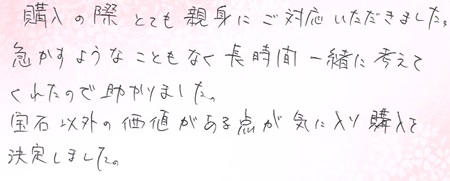 購入の際とても親身にご対応いただきました。
急かすようなこともなく長時間一緒に考えて
くれたので助かりました。
宝石以外の価値がある点が気に入り購入を
決定しました。